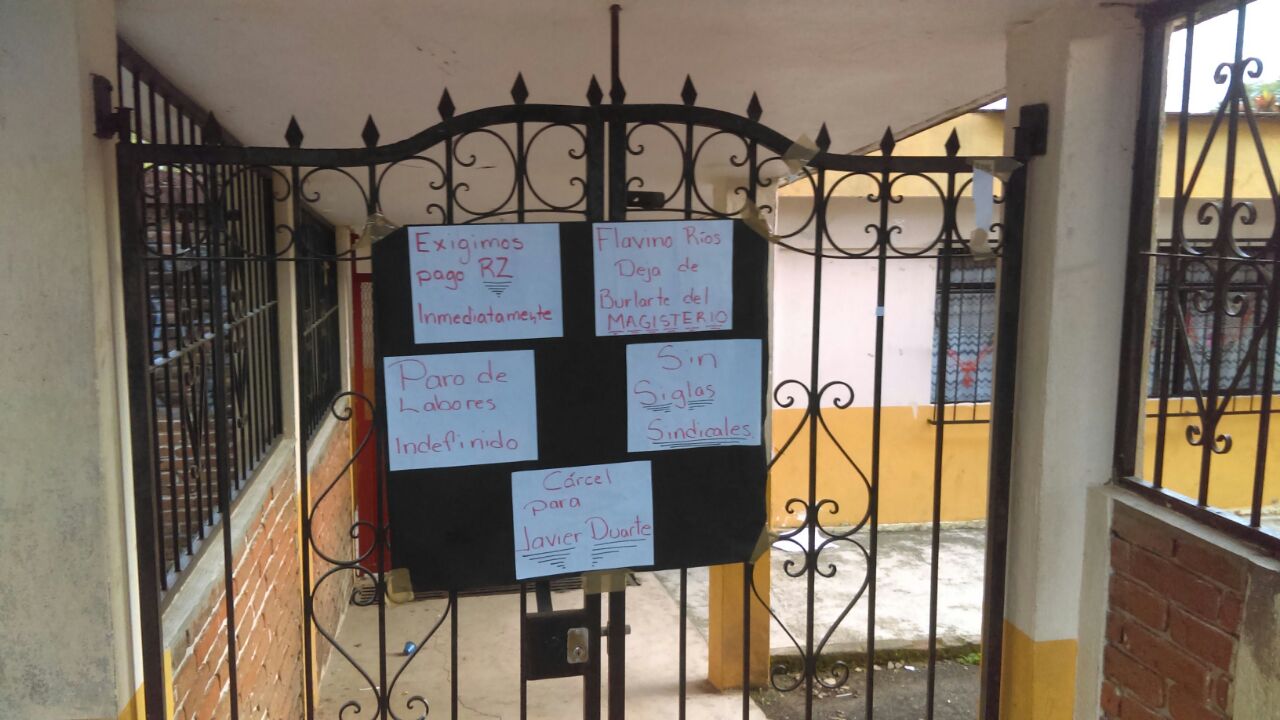 Exigimos
pago RZ
Inmediatamente
Flavino Ríos
Deja de
Burlarte del
MAGISTERIO
Paro de
Labores
Indefinido
Sin
Siglas
Sindicales.
Cárcel
para
Javier Duarte